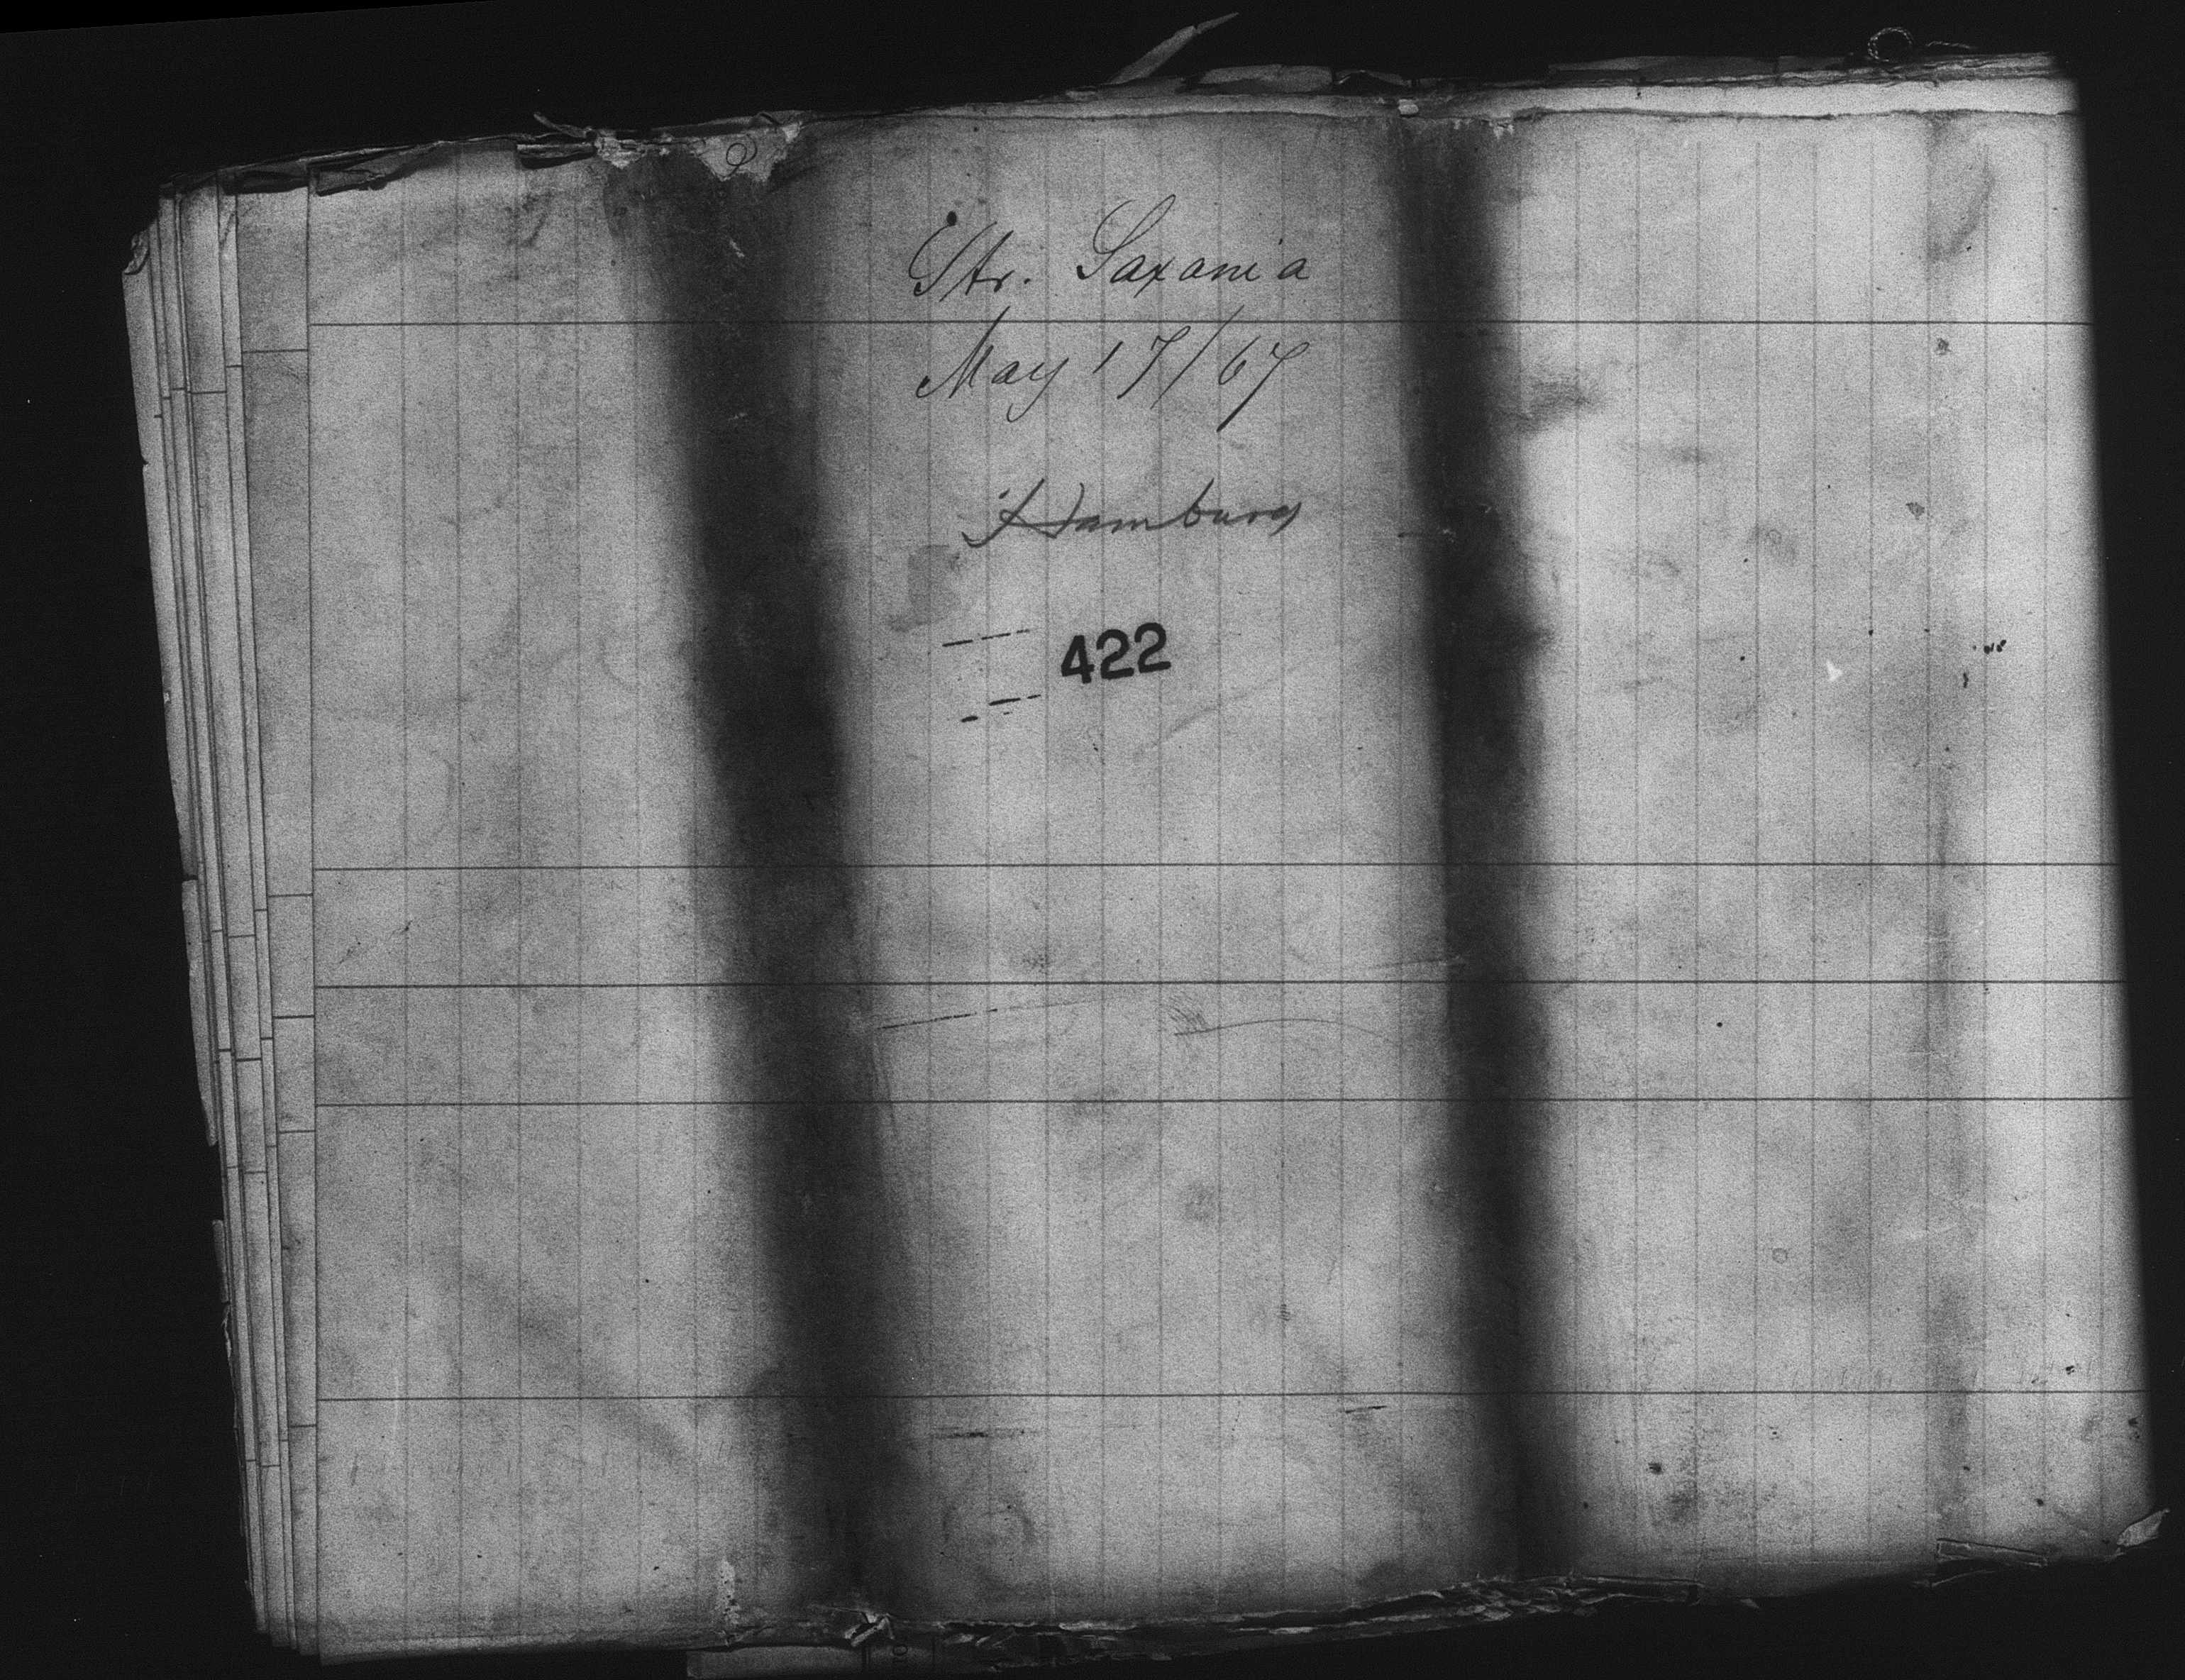 Str. Saxonia
May 17/67
Hamburg
422